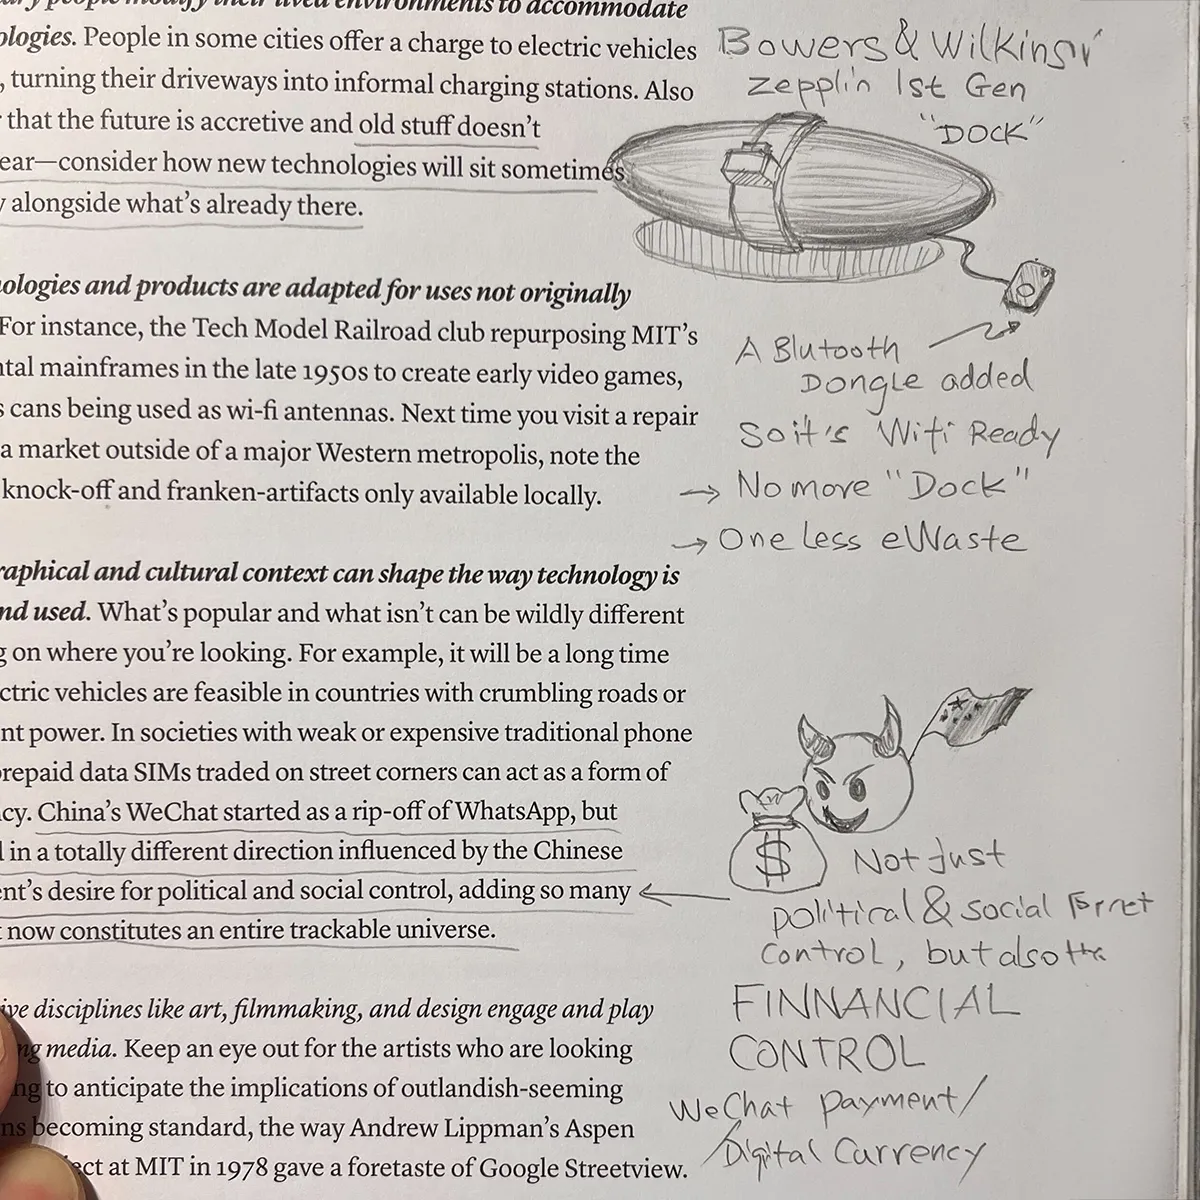 ary people modify their lived environments to accommodate
ologies. People in some cities offer a charge to electric vehicles
, turning their driveways into informal charging stations. Also
that the future is accretive and old stuff doesn't
ear—consider how new technologies will sit sometimes
y alongside what's already there.
ologies and products are adapted for uses not originally
For instance, the Tech Model Railroad club repurposing MIT's
ntal mainframes in the late 1950s to create early video games,
s cans being used as wi-fi antennas. Next time you visit a repair
a market outside of a major Western metropolis, note the
knock-off and franken-artifacts only available locally.
raphical and cultural context can shape the way technology is
nd used. What's popular and what isn't can be wildly different
g on where you're looking. For example, it will be a long time
ctric vehicles are feasible in countries with crumbling roads or
nt power. In societies with weak or expensive traditional phone
prepaid data SIMs traded on street corners can act as a form of
cy. China's WeChat started as a rip-off of WhatsApp, but
l in a totally different direction influenced by the Chinese
ent's desire for political and social control, adding so many
t now constitutes an entire trackable universe.
ive disciplines like art, filmmaking, and design engage and play
ng media. Keep an eye out for the artists who are looking
ng to anticipate the implications of outlandish-seeming
ns becoming standard, the way Andrew Lippman's Aspen
ect at MIT in 1978 gave a foretaste of Google Streetview.
Bowers & Wilkins
Zepplin 1st Gen
"DOCK"
A Blutooth
DONGLE added
So it's Wifi Ready
→ No more "Dock"
→ One Less eWaste
$
Not Just
political & social
Control, but also
FINNANCIAL
CONTROL
WeChat payment/
/Digital Currency